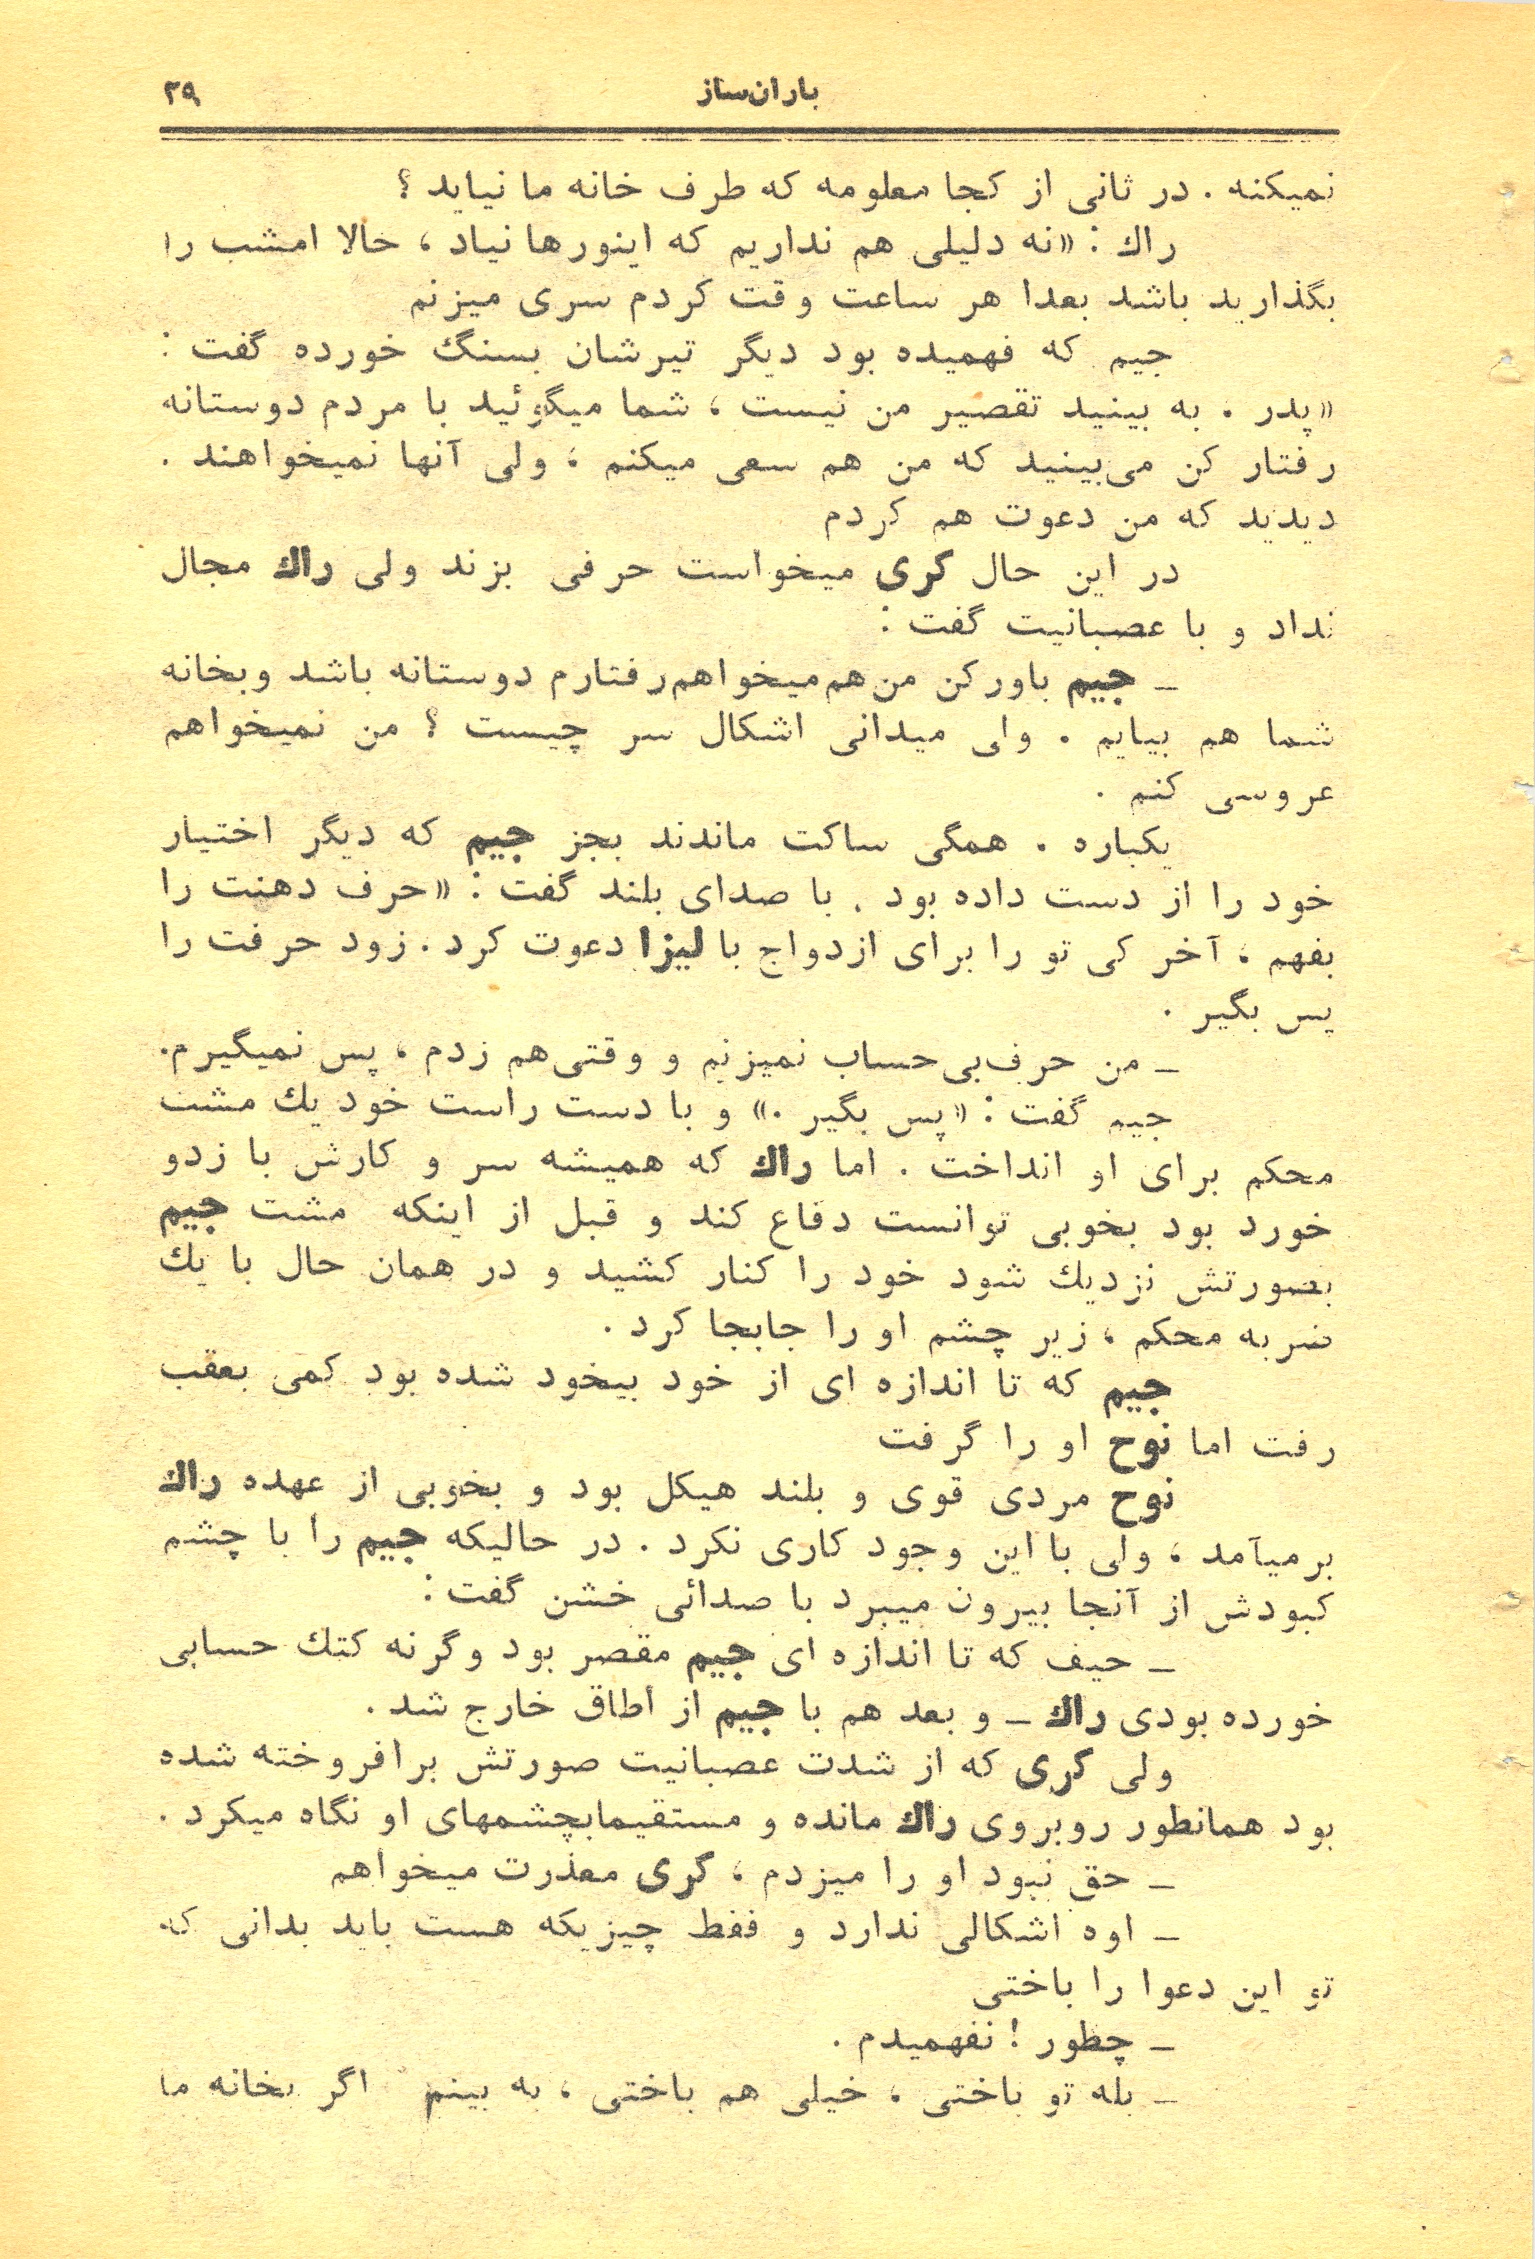 باران‌ساز ۲۹
نمیکنه . در ثانی از کجا معلومه که طرف خانه ما نیاید ؟
راك : «نه دلیلی هم نداریم که اینورها نیاد ، حالا امشب را
بگذارید باشد بعدا هر ساعت وقت کردم سری میزنم
جیم که فهمیده بود دیگر تیرشان بسنگ خورده گفت :
«پدر ، به بینید تقصیر من نیست ، شما میگوئید با مردم دوستانه
رفتار کن می‌بینید که من هم سعی میکنم ، ولی آنها نمیخواهند .
دیدید که من دعوت هم کردم
در این حال کری میخواست حرفی بزند ولی راك مجال
نداد و با عصبانیت گفت :
ــ جیم باور کن من هم میخواهم رفتارم دوستانه باشد وبخانه
شما هم بیایم . ولی میدانی اشکال سر چیست ؟ من نمیخواهم
عروسی کنم .
یکباره . همگی ساکت ماندند بجز جیم که دیگر اختیار
خود را از دست داده بود . با صدای بلند گفت : «حرف دهنت را
بفهم ، آخر کی تو را برای ازدواج با لیزا دعوت کرد . زود حرفت را
پس بگیر .
ــ من حرف بی‌حساب نمیزنم و وقتی هم زدم ، پس نمیگیرم.
جیم گفت : «پس بگیر .» و با دست راست خود یك مشت
محکم برای او انداخت . اما راك که همیشه سر و کارش با زدو
خورد بود بخوبی توانست دفاع کند و قبل از اینکه مشت جیم
بصورتش نزدیك شود خود را کنار کشید و در همان حال با یك
ضربه محکم ، زیر چشم او را جابجا کرد .
جیم که تا اندازه ای از خود بیخود شده بود کمی بعقب
رفت اما نوح او را گرفت
نوح مردی قوی و بلند هیکل بود و بخوبی از عهده راك
برمیآمد ، ولی با این وجود کاری نکرد . در حالیکه جیم را با چشم
کبودش از آنجا بیرون میبرد با صدائی خشن گفت :
ــ حیف که تا اندازه ای جیم مقصر بود وگرنه کتك حسابی
خورده بودی راك ــ و بعد هم با جیم از اطاق خارج شد .
ولی کری که از شدت عصبانیت صورتش برافروخته شده
بود همانطور روبروی راك مانده و مستقیمابچشمهای او نگاه میکرد .
ــ حق نبود او را میزدم ، کری معذرت میخواهم
ــ اوه اشکالی ندارد و فقط چیزیکه هست باید بدانی که
تو این دعوا را باختی
ــ چطور ! نفهمیدم .
ــ بله تو باختی ، خیلی هم باختی ، به بینم اگر بخانه ما